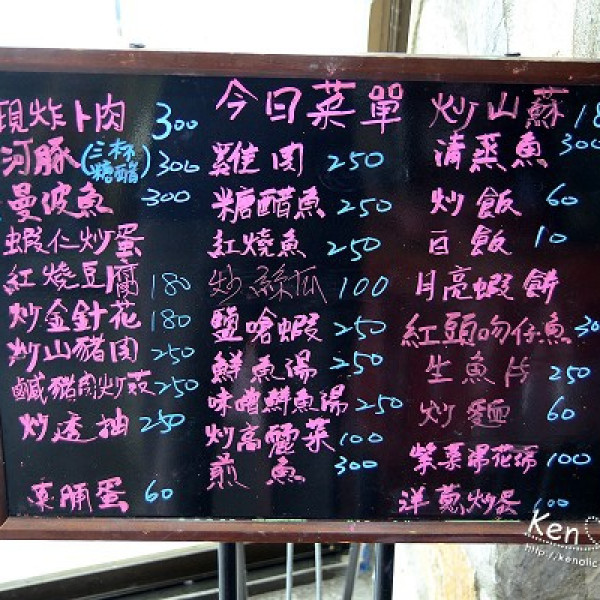 今日菜單
現炸卜肉 300
河豚(三杯 糖醋) 300
曼波魚 300
蝦仁炒蛋
紅燒豆腐 180
炒金針花 180
炒山豬肉 250
鹹豬肉炒蒜 250
炒透抽 250
皮蛋 60
雞肉 250
糖醋魚 250
紅燒魚 250
炒絲瓜 100
鹽嗆蝦 250
鮮魚湯 250
味噌鮮魚湯 250
炒高麗菜 100
煎魚 300
炒山蘇 18
清蒸魚 300
炒飯 60
白飯 10
月亮蝦餅
紅頭吻仔魚 30
生魚片 250
炒麵 60
紫菜湯花湯 100
洋蔥炒蛋 100
Ken
http://kenalic